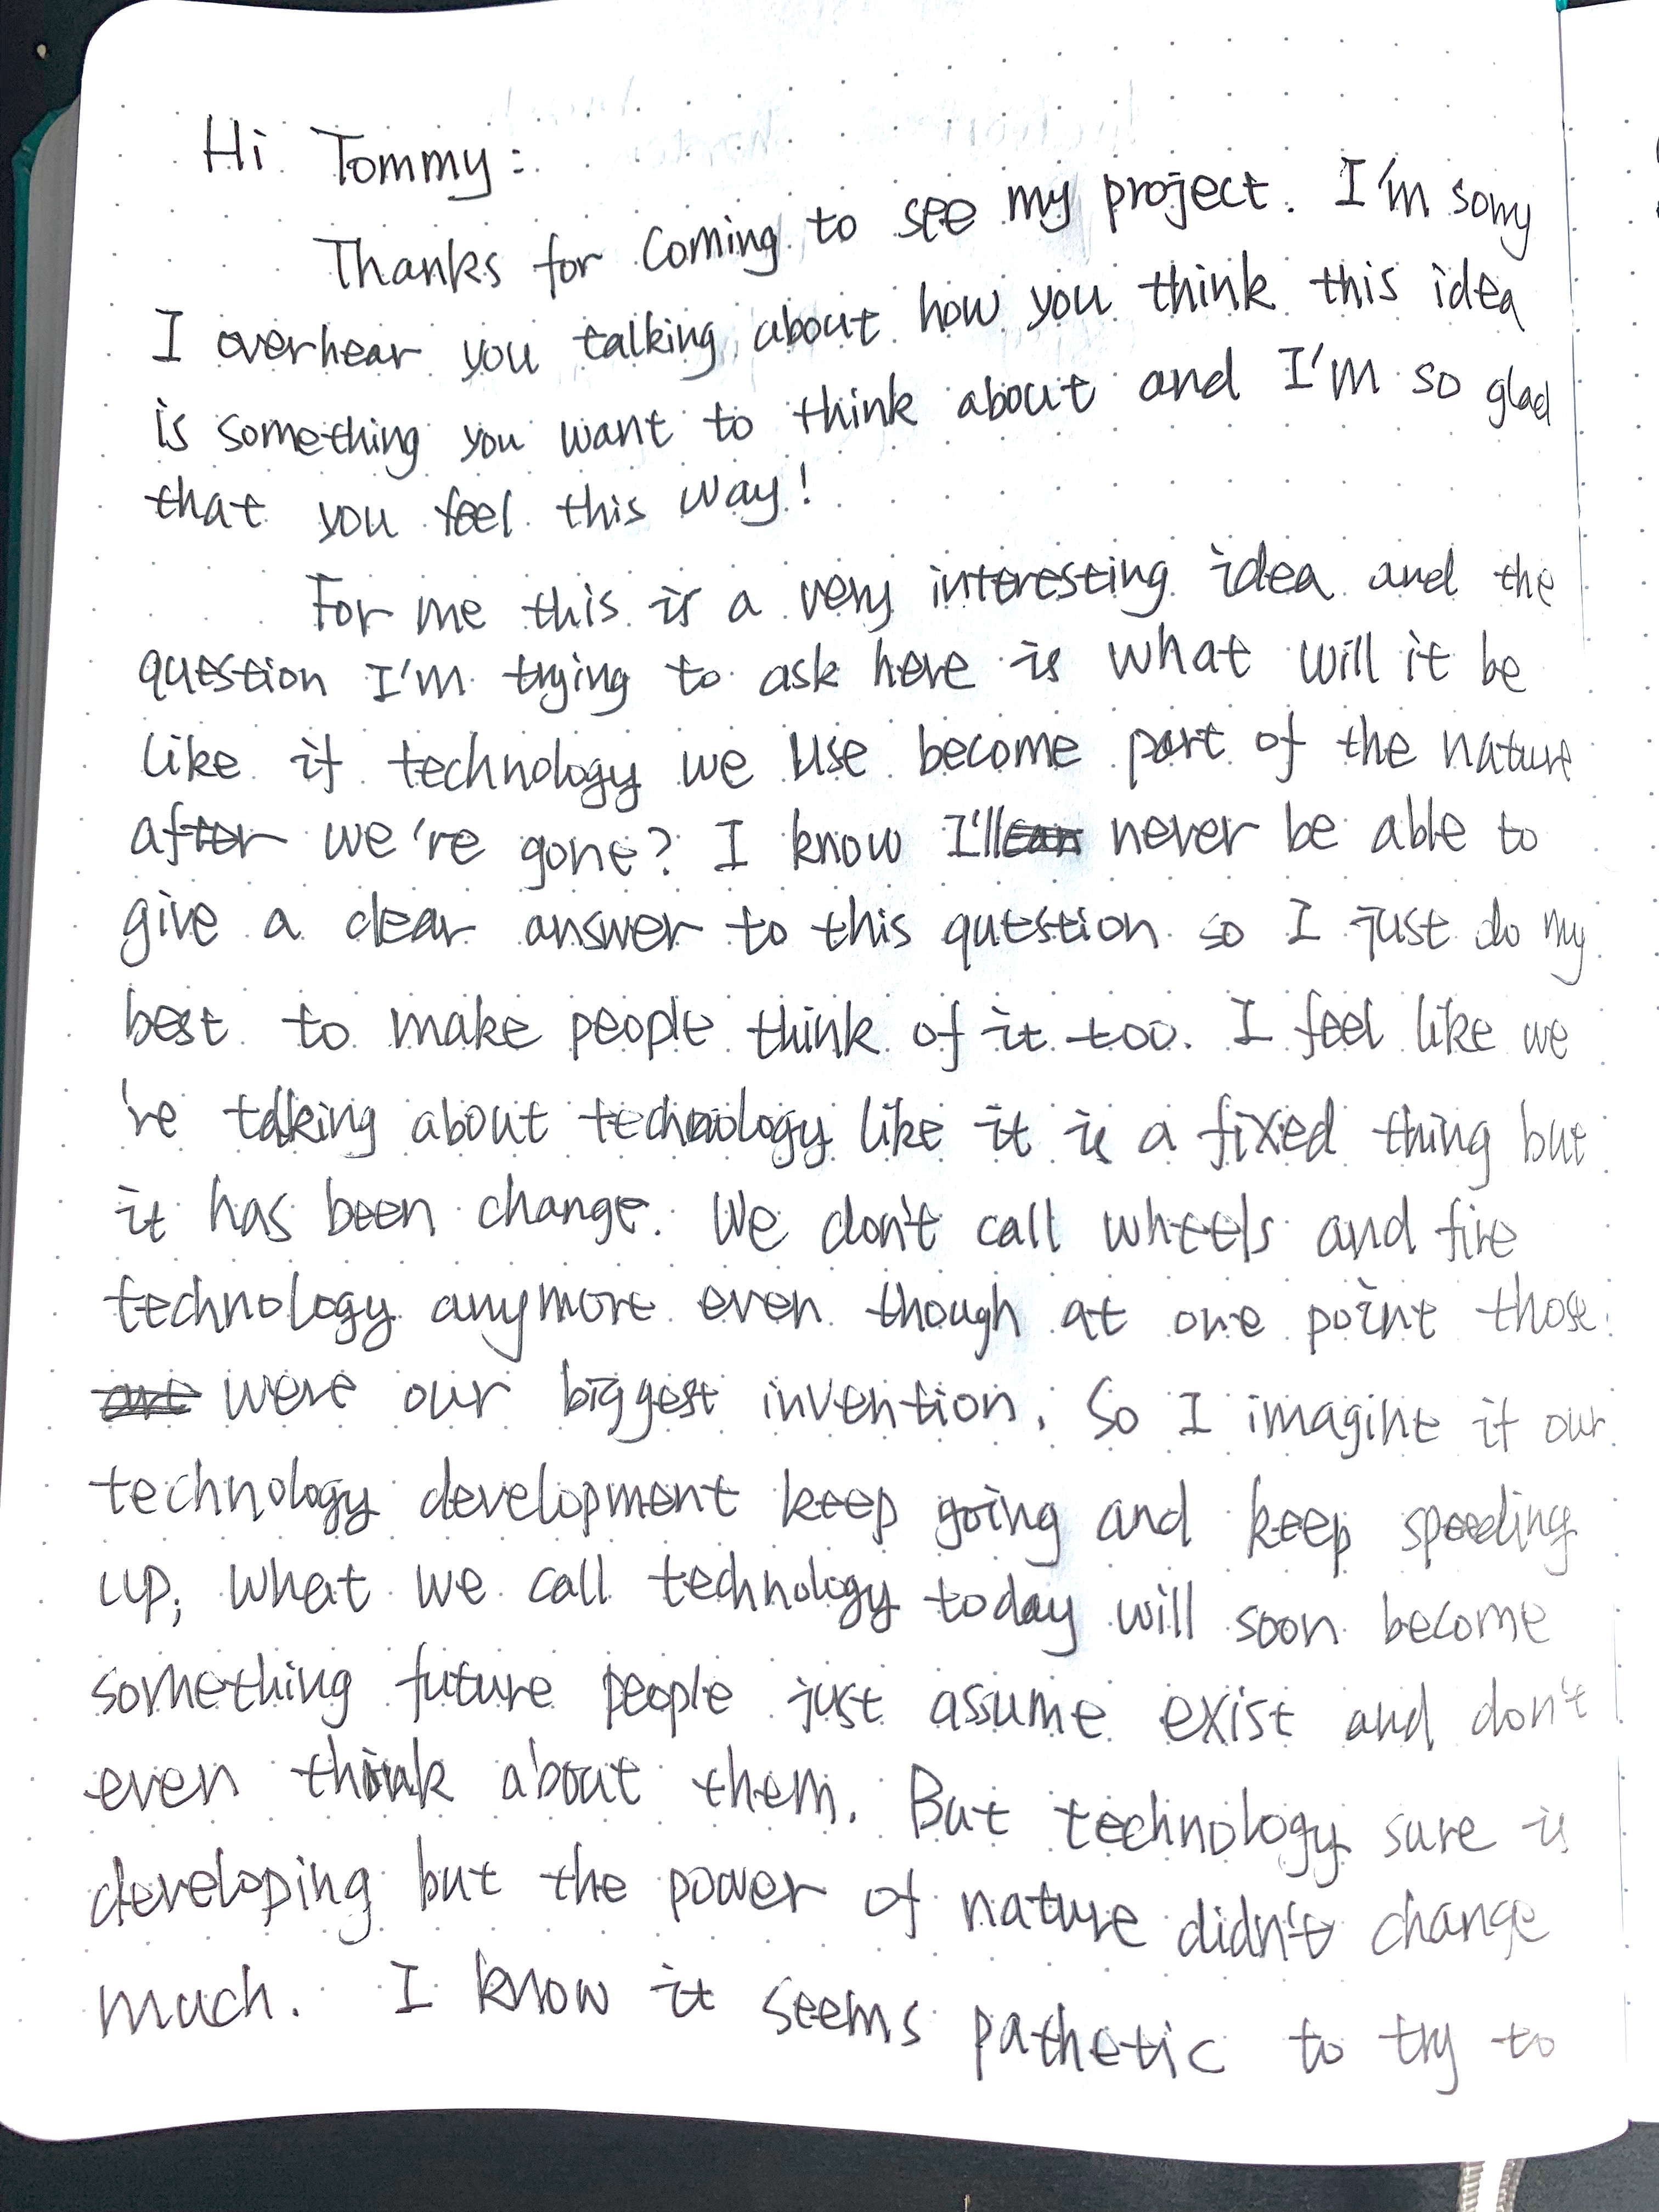 Hi Tommy:
Thanks for coming to see my project. I'm sorry
I overhear you talking about how you think this idea
is something you want to think about and I'm so glad
that you feel this way!
For me this is a very interesting idea and the
question I'm trying to ask here is what will it be
like if technology we use become part of the nature
after we're gone? I know I'll never be able to
give a clear answer to this question so I just do my
best to make people think of it too. I feel like we
're talking about technology like it is a fixed thing but
it has been change. We don't call wheels and fire
technology anymore even though at one point those
were our biggest invention. So I imagine if our
technology development keep going and keep speeding
up, what we call technology today will soon become
something future people just assume exist and don't
even think about them. But technology sure is
developing but the power of nature didn't change
much. I know it seems pathetic to try to